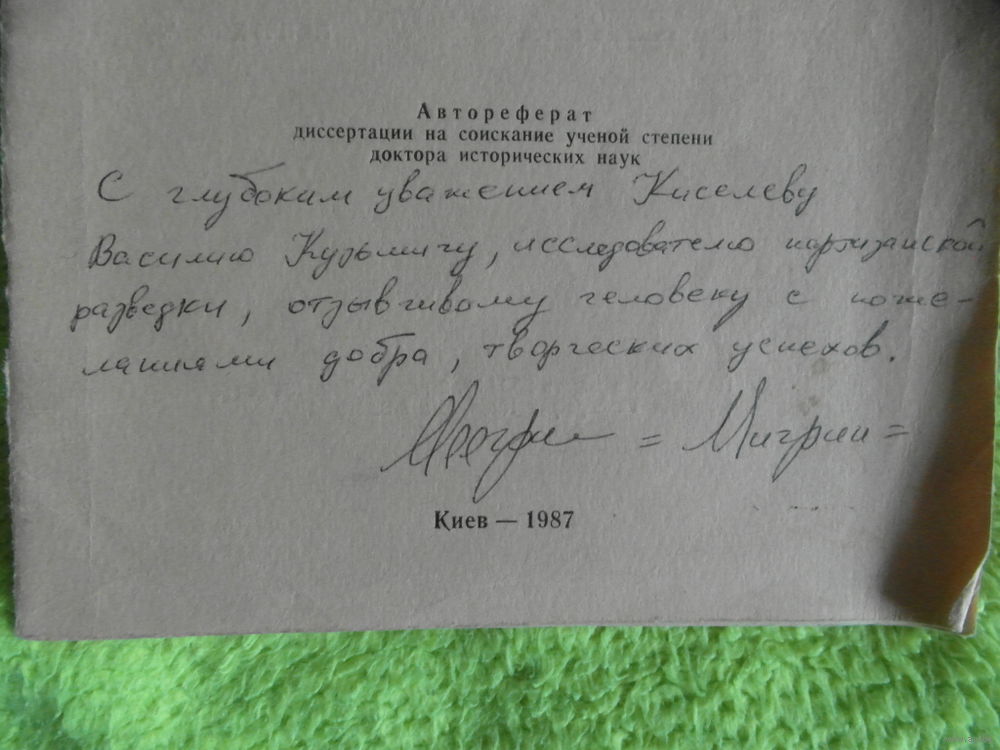 Автореферат
диссертации на соискание ученой степени
доктора исторических наук
С глубоким уважением Киселеву
Василию Кузьмичу, исследователю партизанской
разведки, отзывчивому человеку с поже-
ланиями добра, творческих успехов.
= Мигрин =
Киев — 1987